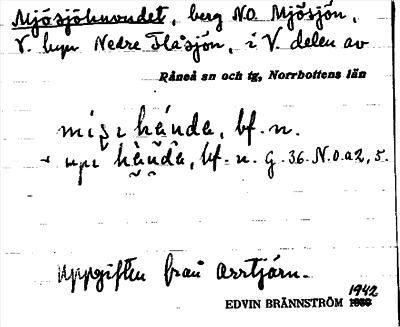 Mjösjöhuvudet, berg N.O. Mjösjön,
V. hupu Nedre Flåsjön, i V. delen av
Råneå sn och tg, Norrbottens län
hánda, bf. n.
bf. n. G. 36. N.o.a2, 5.
Uppgiften från Orrtjärn.
EDVIN BRÄNNSTRÖM 1942